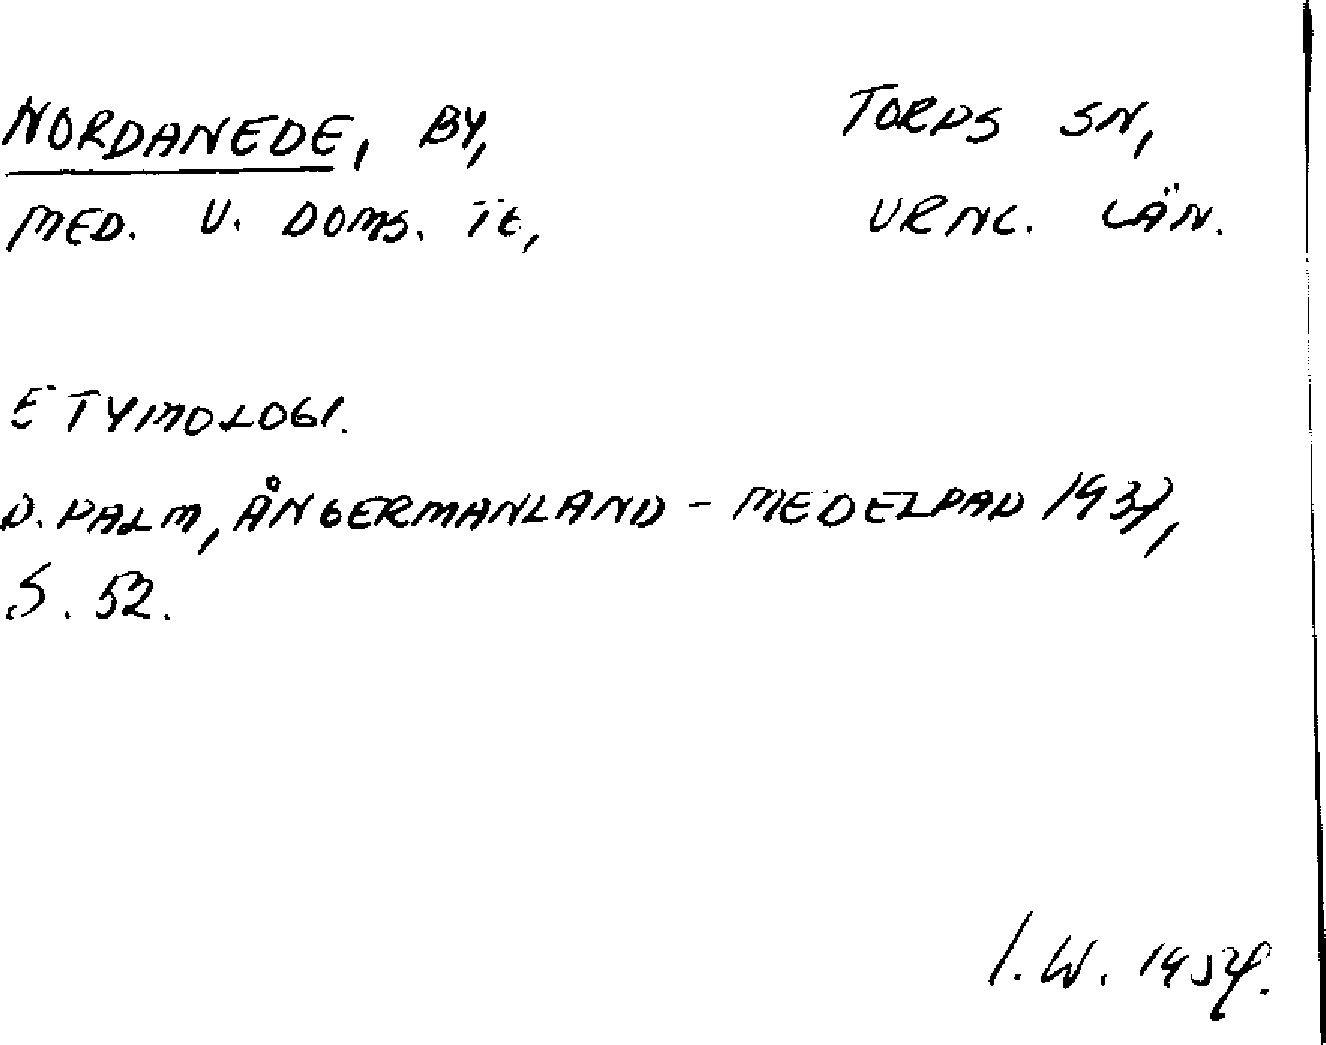 NORDANEDE, BY, TORPS SN,
MED. V. DOMS. TG, VRNL. LÄN.
ETYMOLOGI.
D. PALM, ÅNGERMANLAND - MEDELPAD 1937,
S. 52.
I. W.